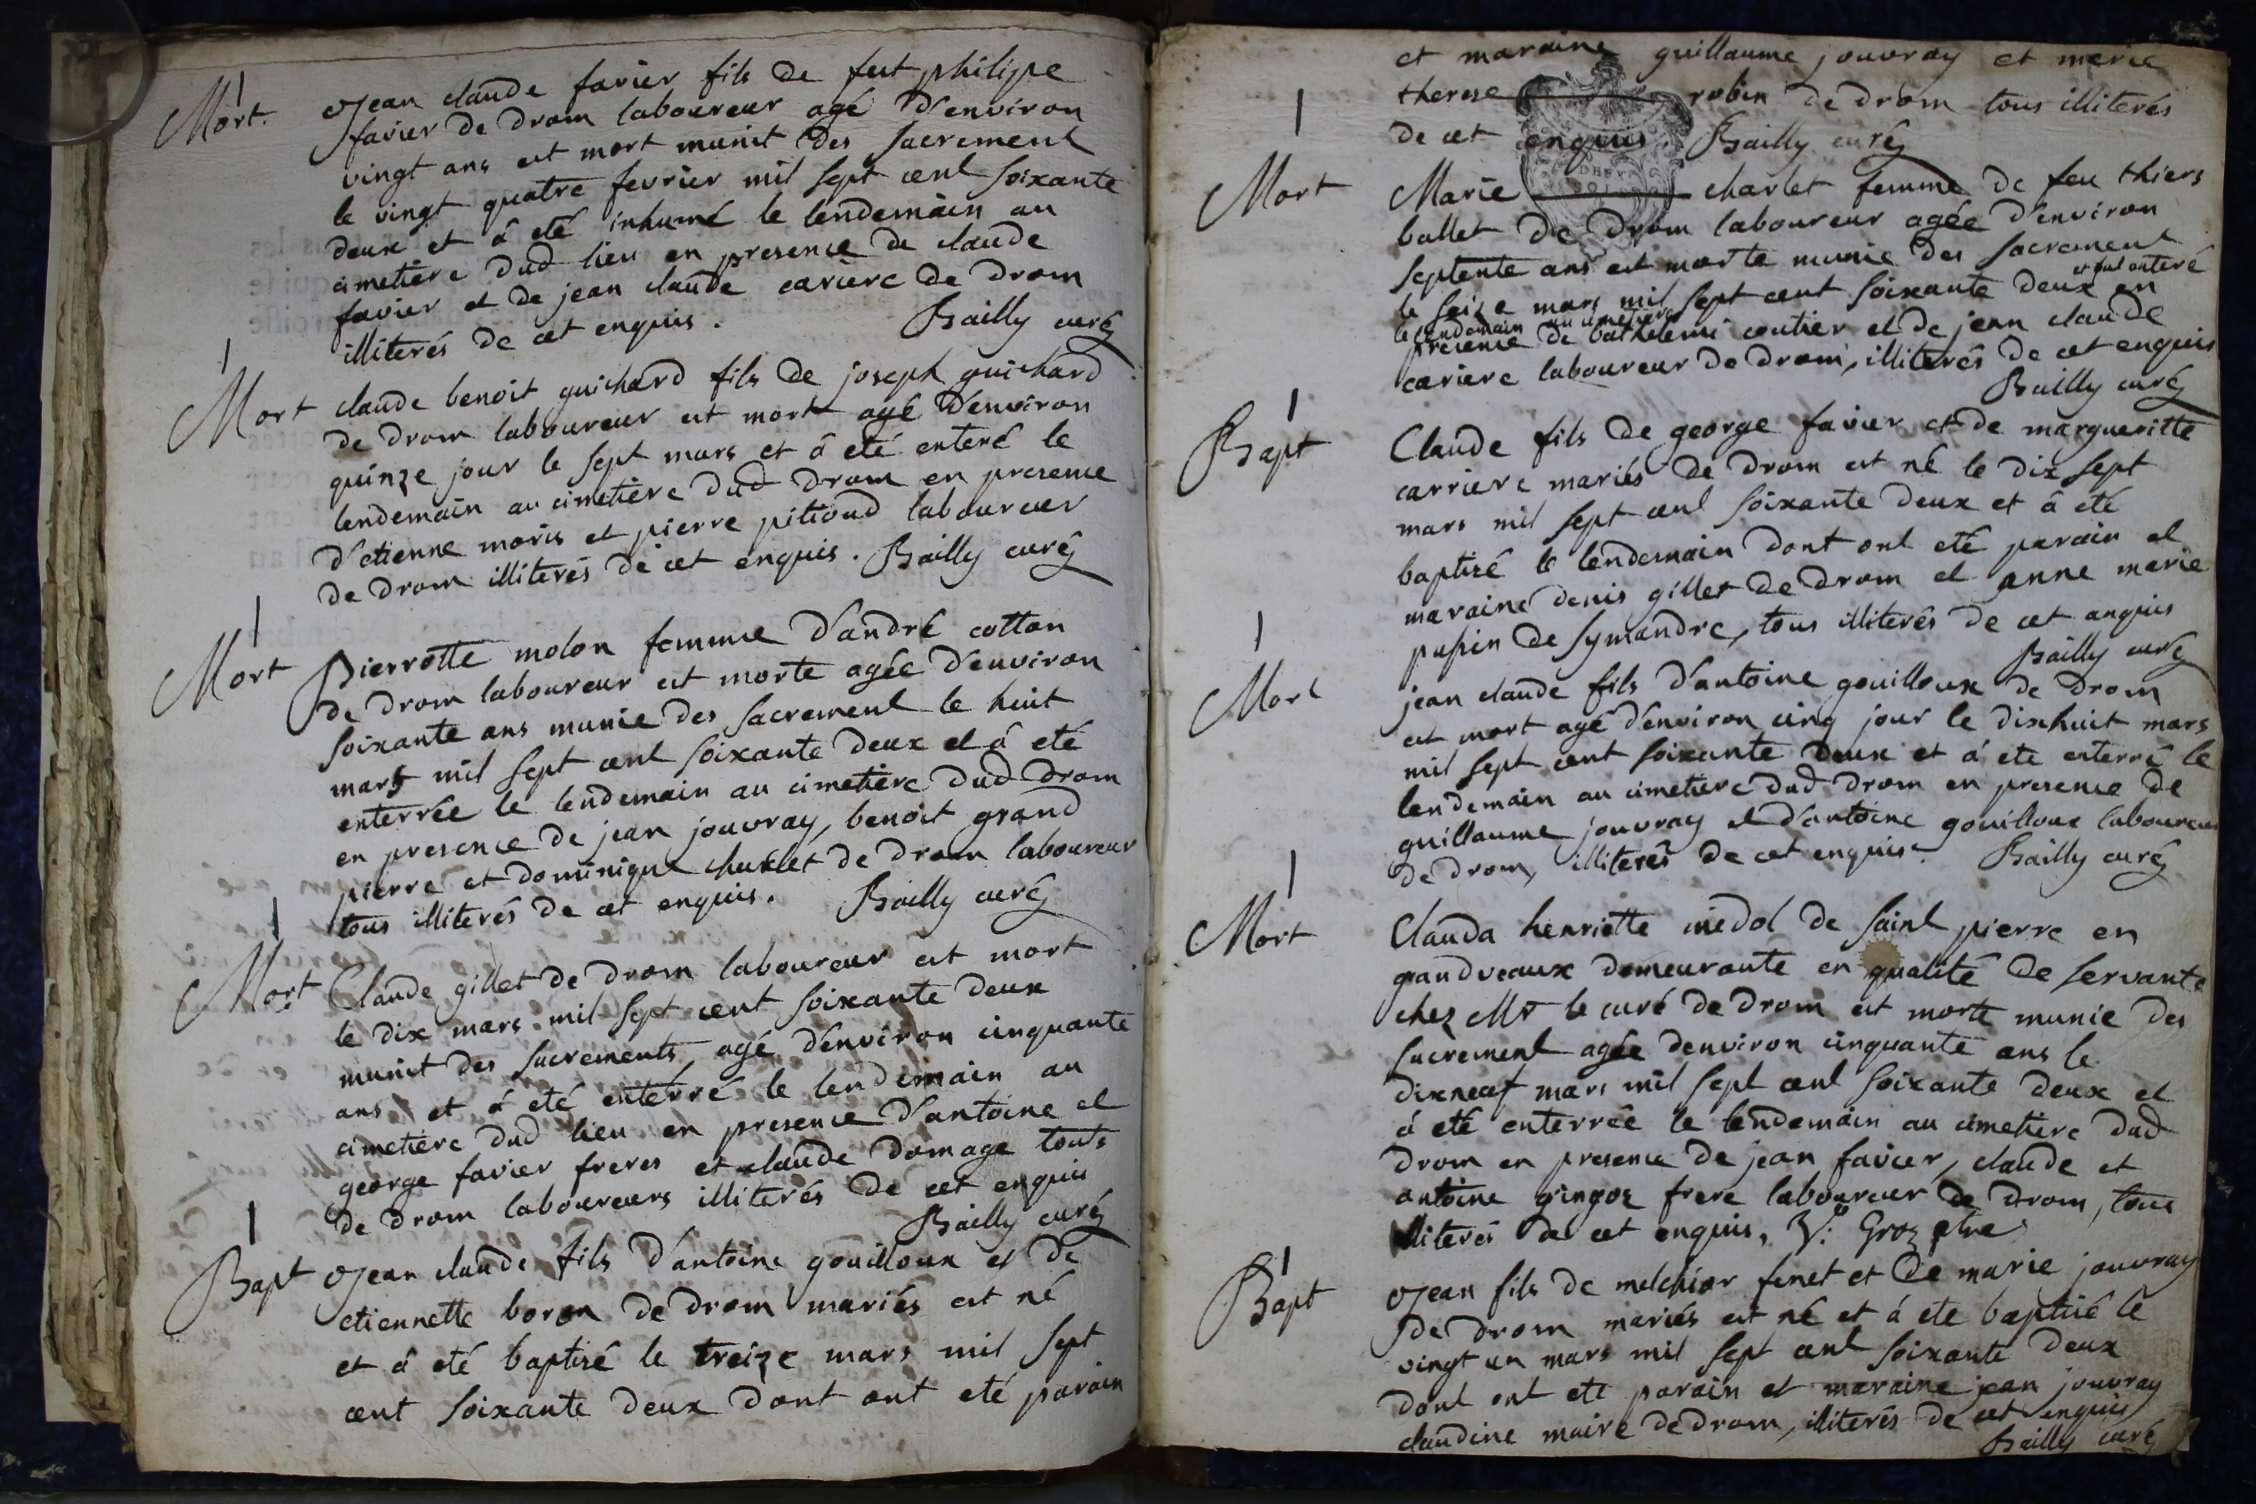 Mort.
Jean claude favier fils de feut philipe
favier de drom laboureur agé d'environ
vingt ans est mort munit des sacrement
le vingt quatre fevrier mil sept cent soixante
deux et á eté inhumé le lendemain au
cimetière dud lieu en presence de claude
favier et de jean claude cariere de drom
illiterés de cet enquis.
Bailly curé
Mort
claude benoit guichard fils de joseph guichard
de drom laboureur est mort agé d'environ
quinze jour le sept mars et á eté enteré le
lendemain au cimetière dud drom en presence
d'etienne moris et pierre pitioud laboureur
de drom illiterés de cet enquis. Bailly curé
Mort
Pierrotte molon femme d'andré cotton
de drom laboureur est morte agée d'environ
soixante ans munie des sacrement le huit
mars mil sept cent soixante deux et á eté
enterrée le lendemain au cimetière dud drom
en presence de jean jouvray, benoit grand
pierre et dominique charlet de drom laboureur
tous illiterés de cet enquis. Bailly curé
Mort
Claude gillet de drom laboureur est mort
le dix mars mil sept cent soixante deux
munit des sacrements, agé d'environ cinquante
ans et á eté enterré le lendemain au
cimetière dud lieu en presence d'antoine et
george favier freres et claude domage touts
de drom laboureurs illiterés de cet enquis
Bailly curé
Bapt
Jean claude fils d'antoine gouilloux et de
etiennette boron de drom mariés est né
et á eté baptisé le treize mars mil sept
cent soixante deux dont ont eté parain
et maraine guillaume jouvray et marie
therese robin de drom tous illiterés
de cet enquis. Bailly curé
Mort
Marie charlet femme de feu thiers
ballet de drom laboureur agée d'environ
septente ans est morte munie des sacrement
et fut enteré
le seize mars mil sept cent soixante deux en
le lendemain au cimetiere
presence de bathelemi coutier et de jean claude
cariere laboureur de drom, illiterés de cet enquis
Bailly curé
Bapt
Claude fils de george favier et de margueritte
carriere mariés de drom est né le dix sept
mars mil sept cent soixante deux et á eté
baptisé le lendemain dont ont eté parain et
maraine denis gillet de drom et anne marie
pupin de symandre, tous illiterés de cet anquis
Bailly curé
Mort
jean claude fils d'antoine gouilloux de drom
est mort agé d'environ cinq jour le dixhuit mars
mil sept cent soixante deux et á eté enterré le
lendemain au cimetiere dud drom en presence de
guillaume jouvray et d'antoine gouilloux laboureur
de drom, illiterés de cet enquis. Bailly curé
Mort
Clauda henriette medol de saint pierre en
grandveaux demeurante en qualité de servante
chez Mr le curé de drom est morte munie des
sacrement agée denviron cinquante ans le
dixneuf mars mil sept cent soixante deux et
á eté enterrée le lendemain au cimetiere dud
drom en presence de jean favier, claude et
antoine gingoz frere laboureur de drom, tous
illiterés de cet enquis, V: Groz ptre
Bapt
Jean fils de melchior fenet et de marie jouvray
de drom mariés est né et á eté baptisé le
vingt un mars mil sept cent soixante deux
dont ont eté parain et maraine jean jouvray
claudine maire de drom, illiterés de cet enquis
Bailly curé